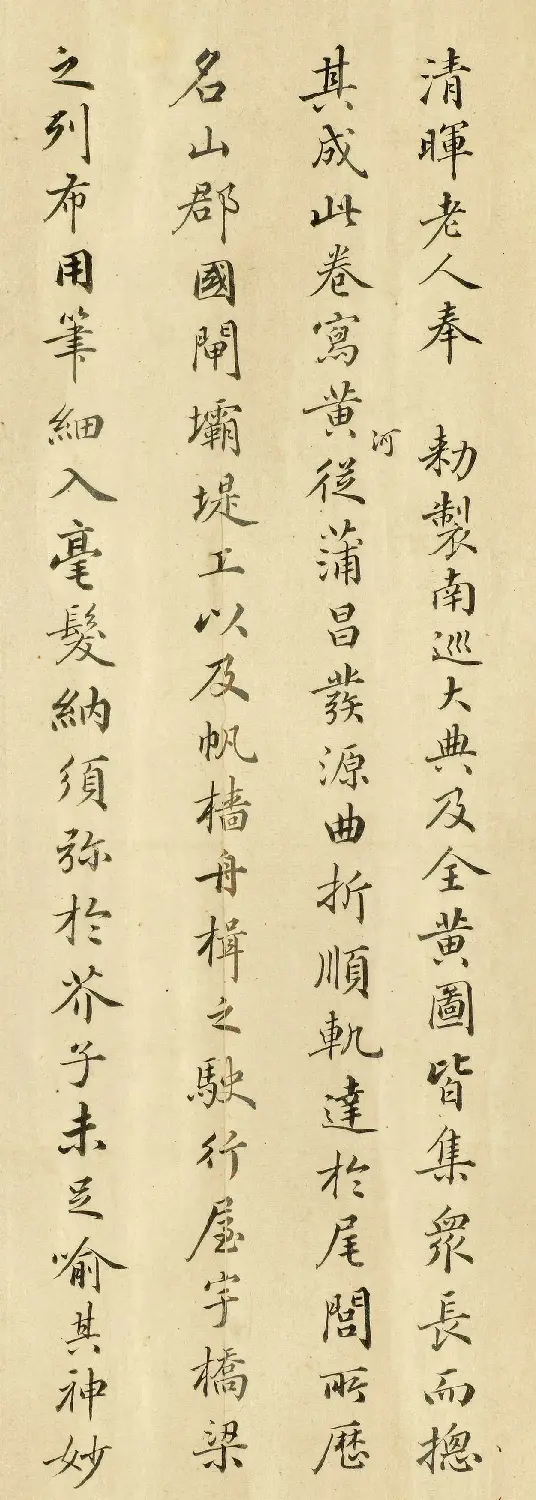 清暉老人奉　勅製南巡大典及全黄圖皆集衆長而摠
其成此卷寫黄河從蒲昌發源曲折順軌達於尾閭所歷
名山郡國閘壩堤工以及帆檣舟楫之駛行屋宇橋梁
之列布用筆細入毫髮納須弥於芥子未足喻其神妙